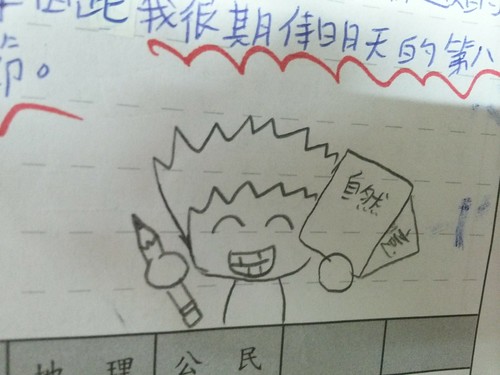 我很期待明天的第八
節。
自然
地理 公民